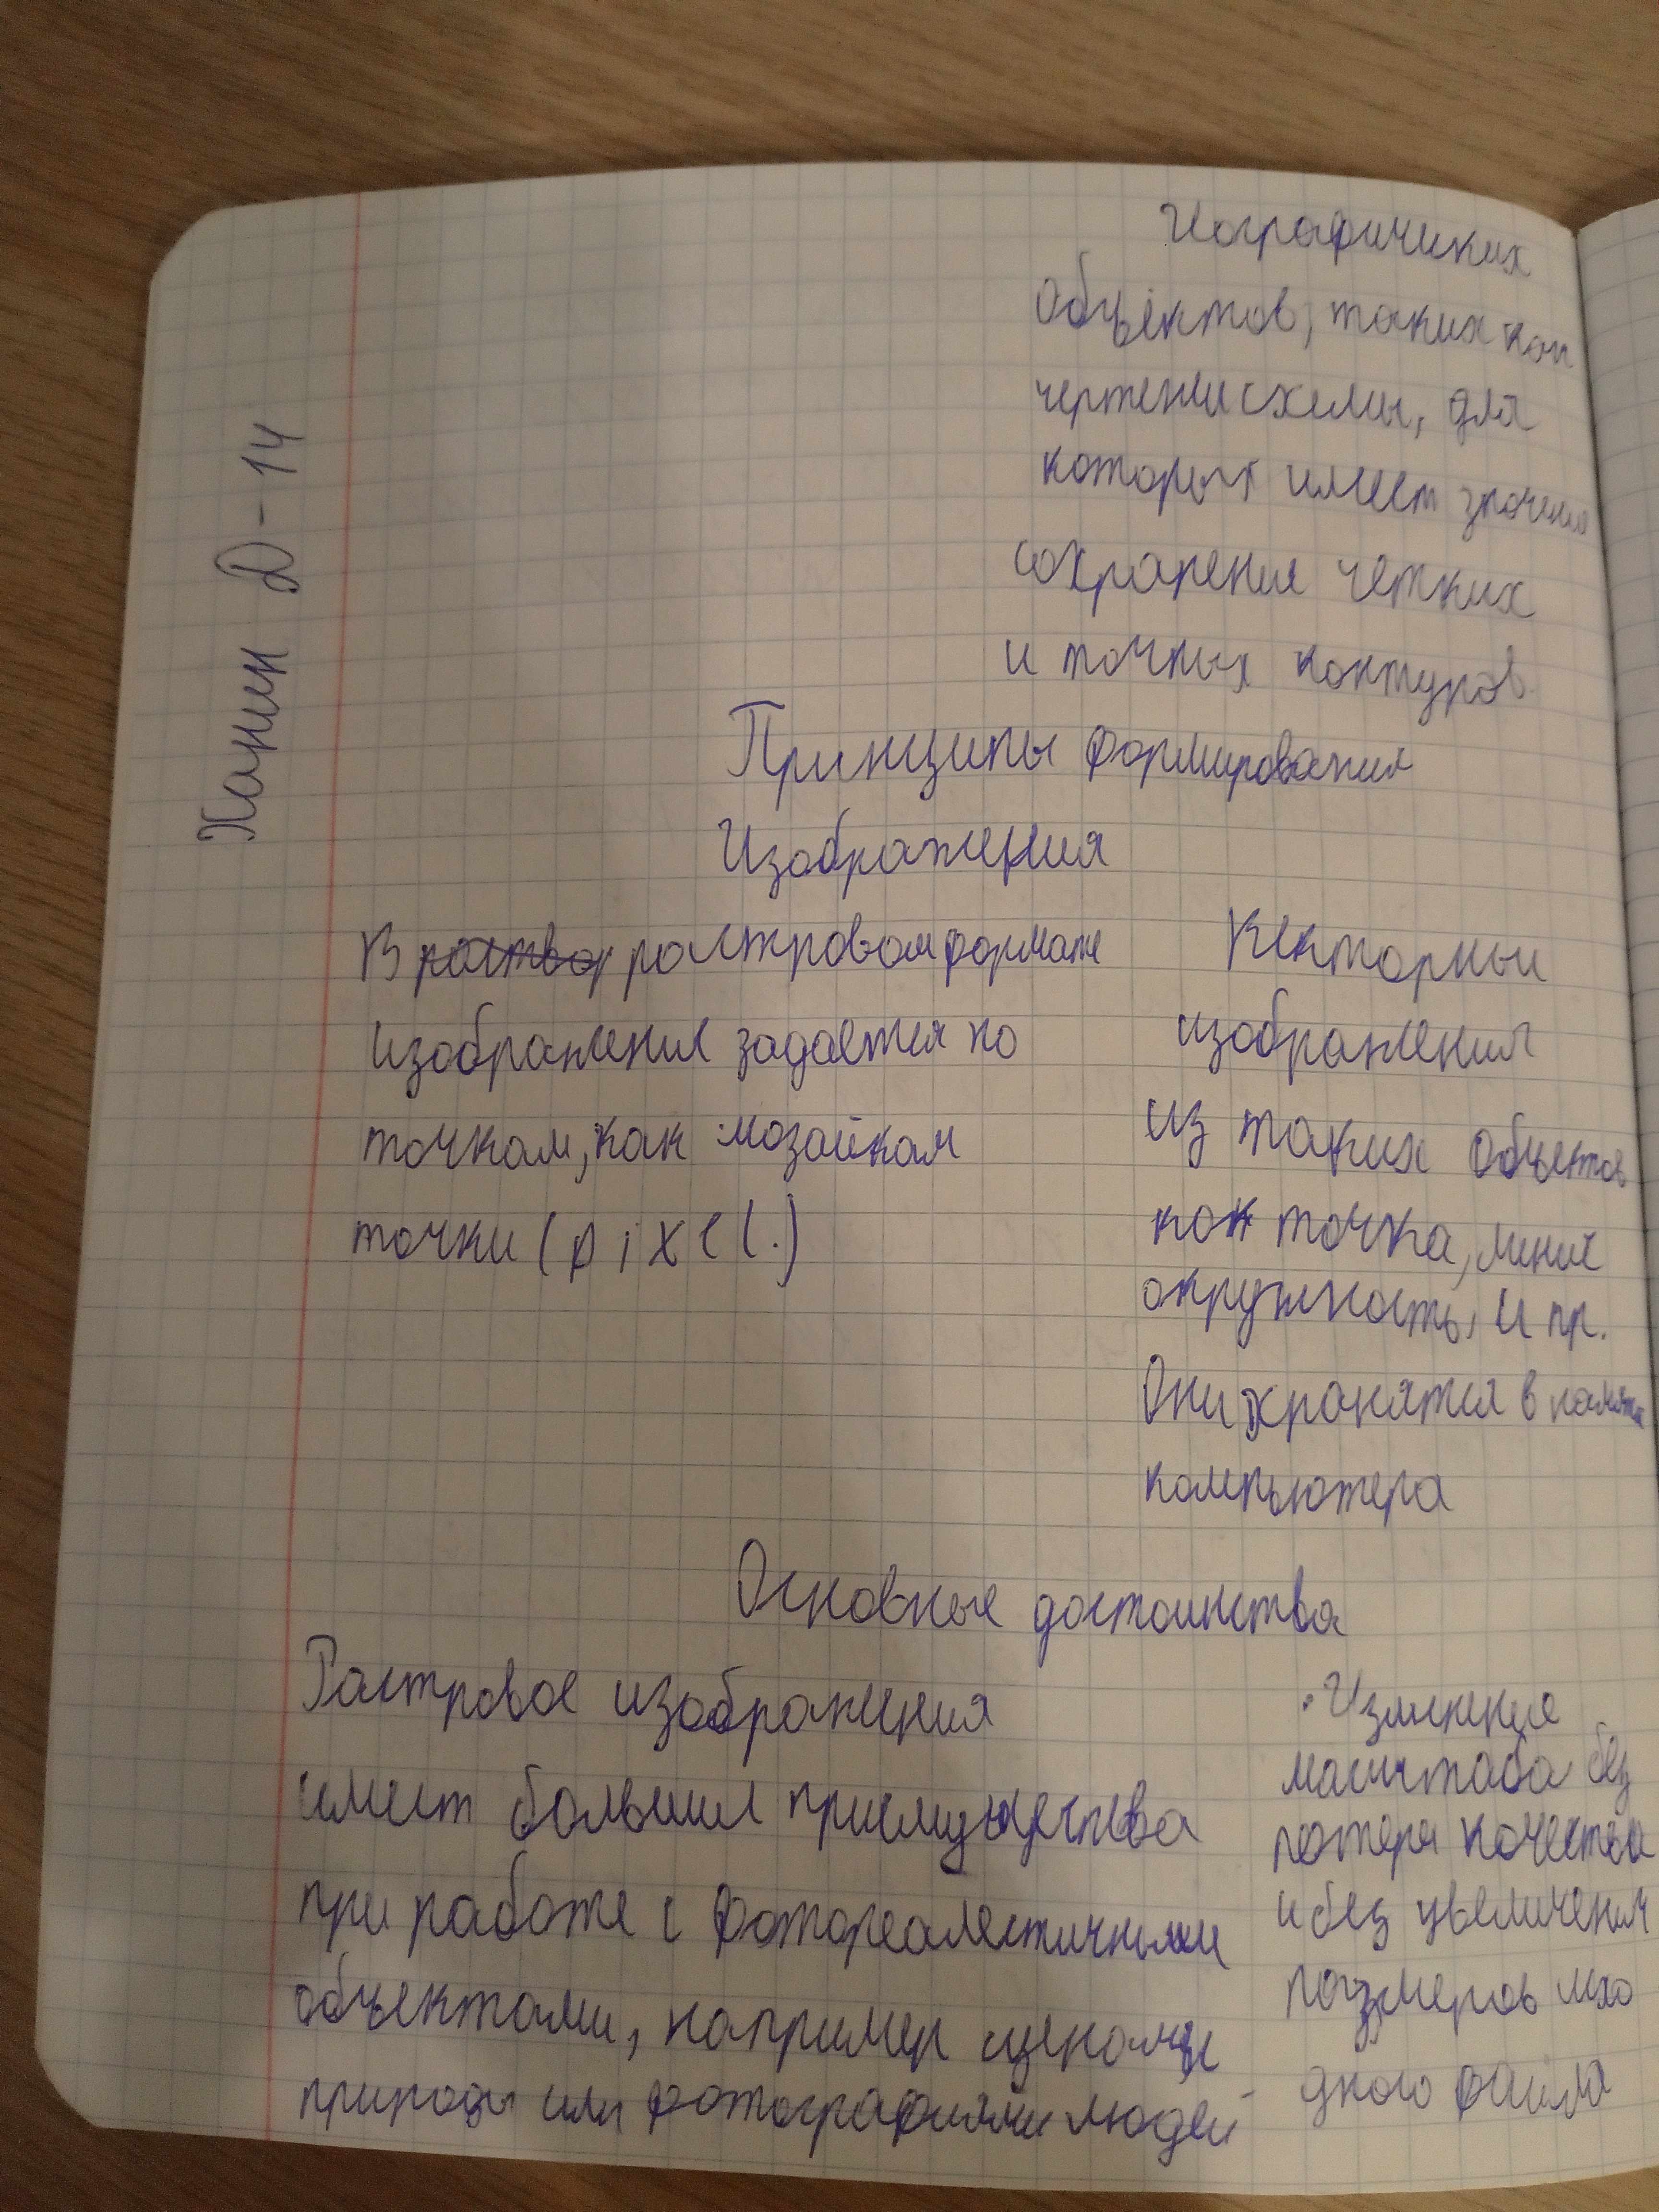 Ханин D-14
Иографичиких
Объектов, таких как
чертении схемы, для
которых имеет значения
сохранения четких
и точных контуров.
Принципы формирования
Изображения
В раствор растровом формате
изображения задается по
точкам, как мозайкам
точки (pixel.)
Векторный
изображения
из таких объектов
как точка, линия
окружность, и пр.
Они хранятся в памяти
компьютера
Основные достоинства
Растровое изображения
имеет большии приемущества
при работе с фотореалестичными
объектами, например сценами
природы или фотографиями людей
• Изменения
масштаба без
потери качества
и без увеличения
размеров исхо
дного файла